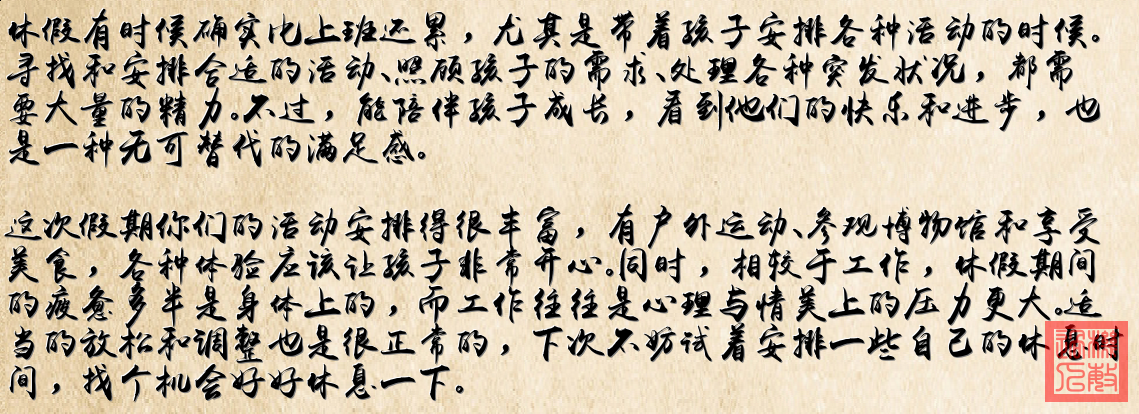 休假有时候确实比上班还累，尤其是带着孩子安排各种活动的时候。
寻找和安排合适的活动、照顾孩子的需求、处理各种突发状况，都需
要大量的精力。不过，能陪伴孩子成长，看到他们的快乐和进步，也
是一种无可替代的满足感。
这次假期你们的活动安排得很丰富，有户外运动、参观博物馆和享受
美食，各种体验应该让孩子非常开心。同时，相较于工作，休假期间
的疲惫多半是身体上的，而工作往往是心理与情美上的压力更大。适
当的放松和调整也是很正常的，下次不妨试着安排一些自己的休息时
间，找个机会好好休息一下。